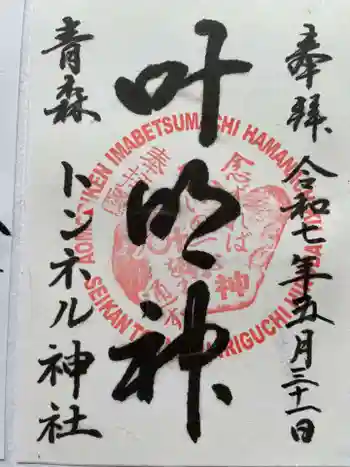 奉拝 令和七年五月三十一日
叶明神
青森 トンネル神社
AOMORIKEN IMABETSUMACHI HAMANA
SEIKAN
IRIGUCHI
神